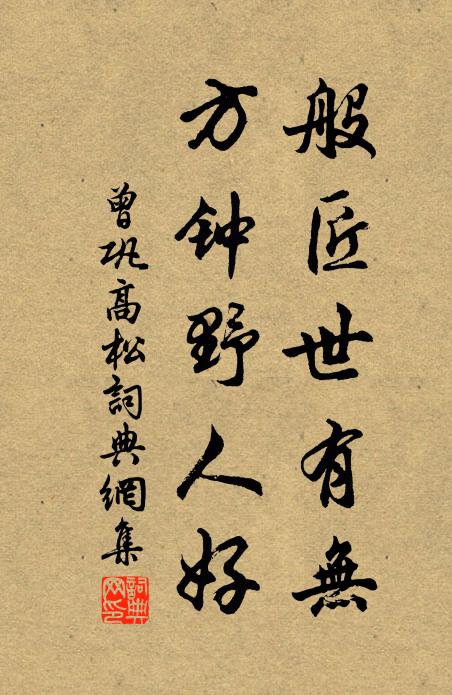 般匠世有無
方钟野人好
曾巩高松詞典網集
詞典网印